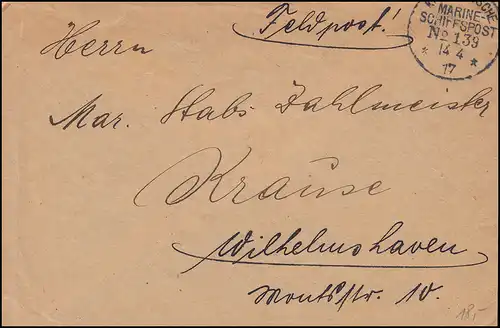 Feldpost!
MARINE-
SCHIFFSPOST
No 139
* 14 4 *
17
Herrn
Mar. Stabs Zahlmeister
Krause
Wilhelmshaven
str. 10.
18,-